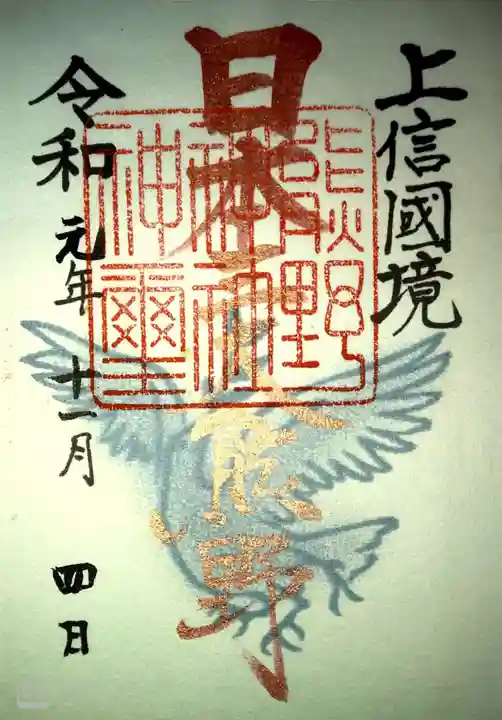 上信國境
日本三大熊野
熊野
神社
神璽
令和元年十一月四日